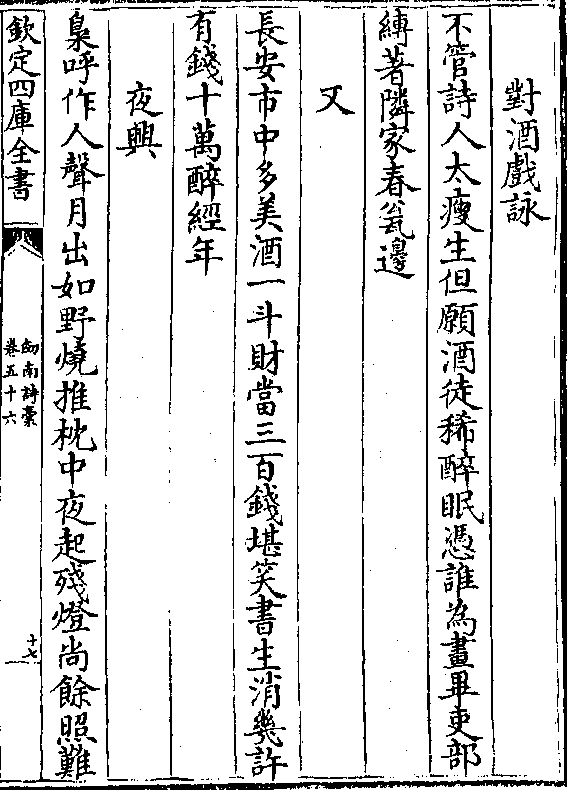 對酒戲詠
不管詩人太瘦生但願酒徒稀醉眠憑誰為畫畢吏部
縛著隣家春瓮邊
又
長安市中多美酒一斗財當三百錢堪笑書生消幾許
有錢十萬醉經年
夜興
梟呼作人聲月出如野燒推枕中夜起殘燈尚餘照難
欽定四庫全書
劒南詩稾
卷五十六
十七